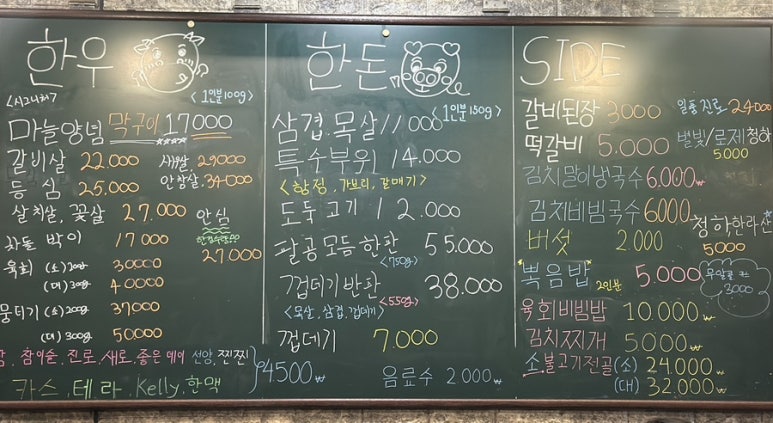 한우
<시그니처>
<1인분 100g>
마늘양념 막구이 17000
갈비살 22.000
새우살 29000
등심 25.000
안창살 34000
살치살, 꽃살 27.000
안심
27000
차돌박이 17000
육회 (소) 30000
(대) 40000
뭉티기 (소) 200g 37000
(대) 300g 50000
참이슬, 진로, 새로, 좋은데이 선양, 찐찐
카스, 테라, Kelly, 한맥
4500₩
한돈
<1인분 150g>
삼겹, 목살 11000
특수부위 14.000
<항정, 가브리, 갈매기>
도두고기 12.000
팔공모듬한판 55000
<750g>
껍데기반판 38.000
<목살, 삼겹, 껍데기>
<550g>
껍데기 7.000
음료수 2000₩
SIDE
갈비된장 3000
일품진로 24000
떡갈비 5.000
별빛/로제청하
5000
김치말이냉국수 6.000₩
김치비빔국수 6000
청하, 한라산
5000
버섯 2.000
볶음밥 2인분 5.000₩
무알콜
3000
육회비빔밥 10.000₩
김치찌개 5000₩
소불고기전골 (소) 24.000₩
(대) 32.000₩